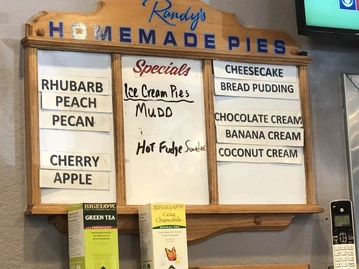 Randy's
HOMEMADE PIES
RHUBARB
PEACH
PECAN
CHERRY
APPLE
Specials
Ice Cream Pies
MUDD
Hot Fudge Sundae
CHEESECAKE
BREAD PUDDING
CHOCOLATE CREAM
BANANA CREAM
COCONUT CREAM
BIGELOW
GREEN TEA
BIGELOW
Cozy
Chamomile